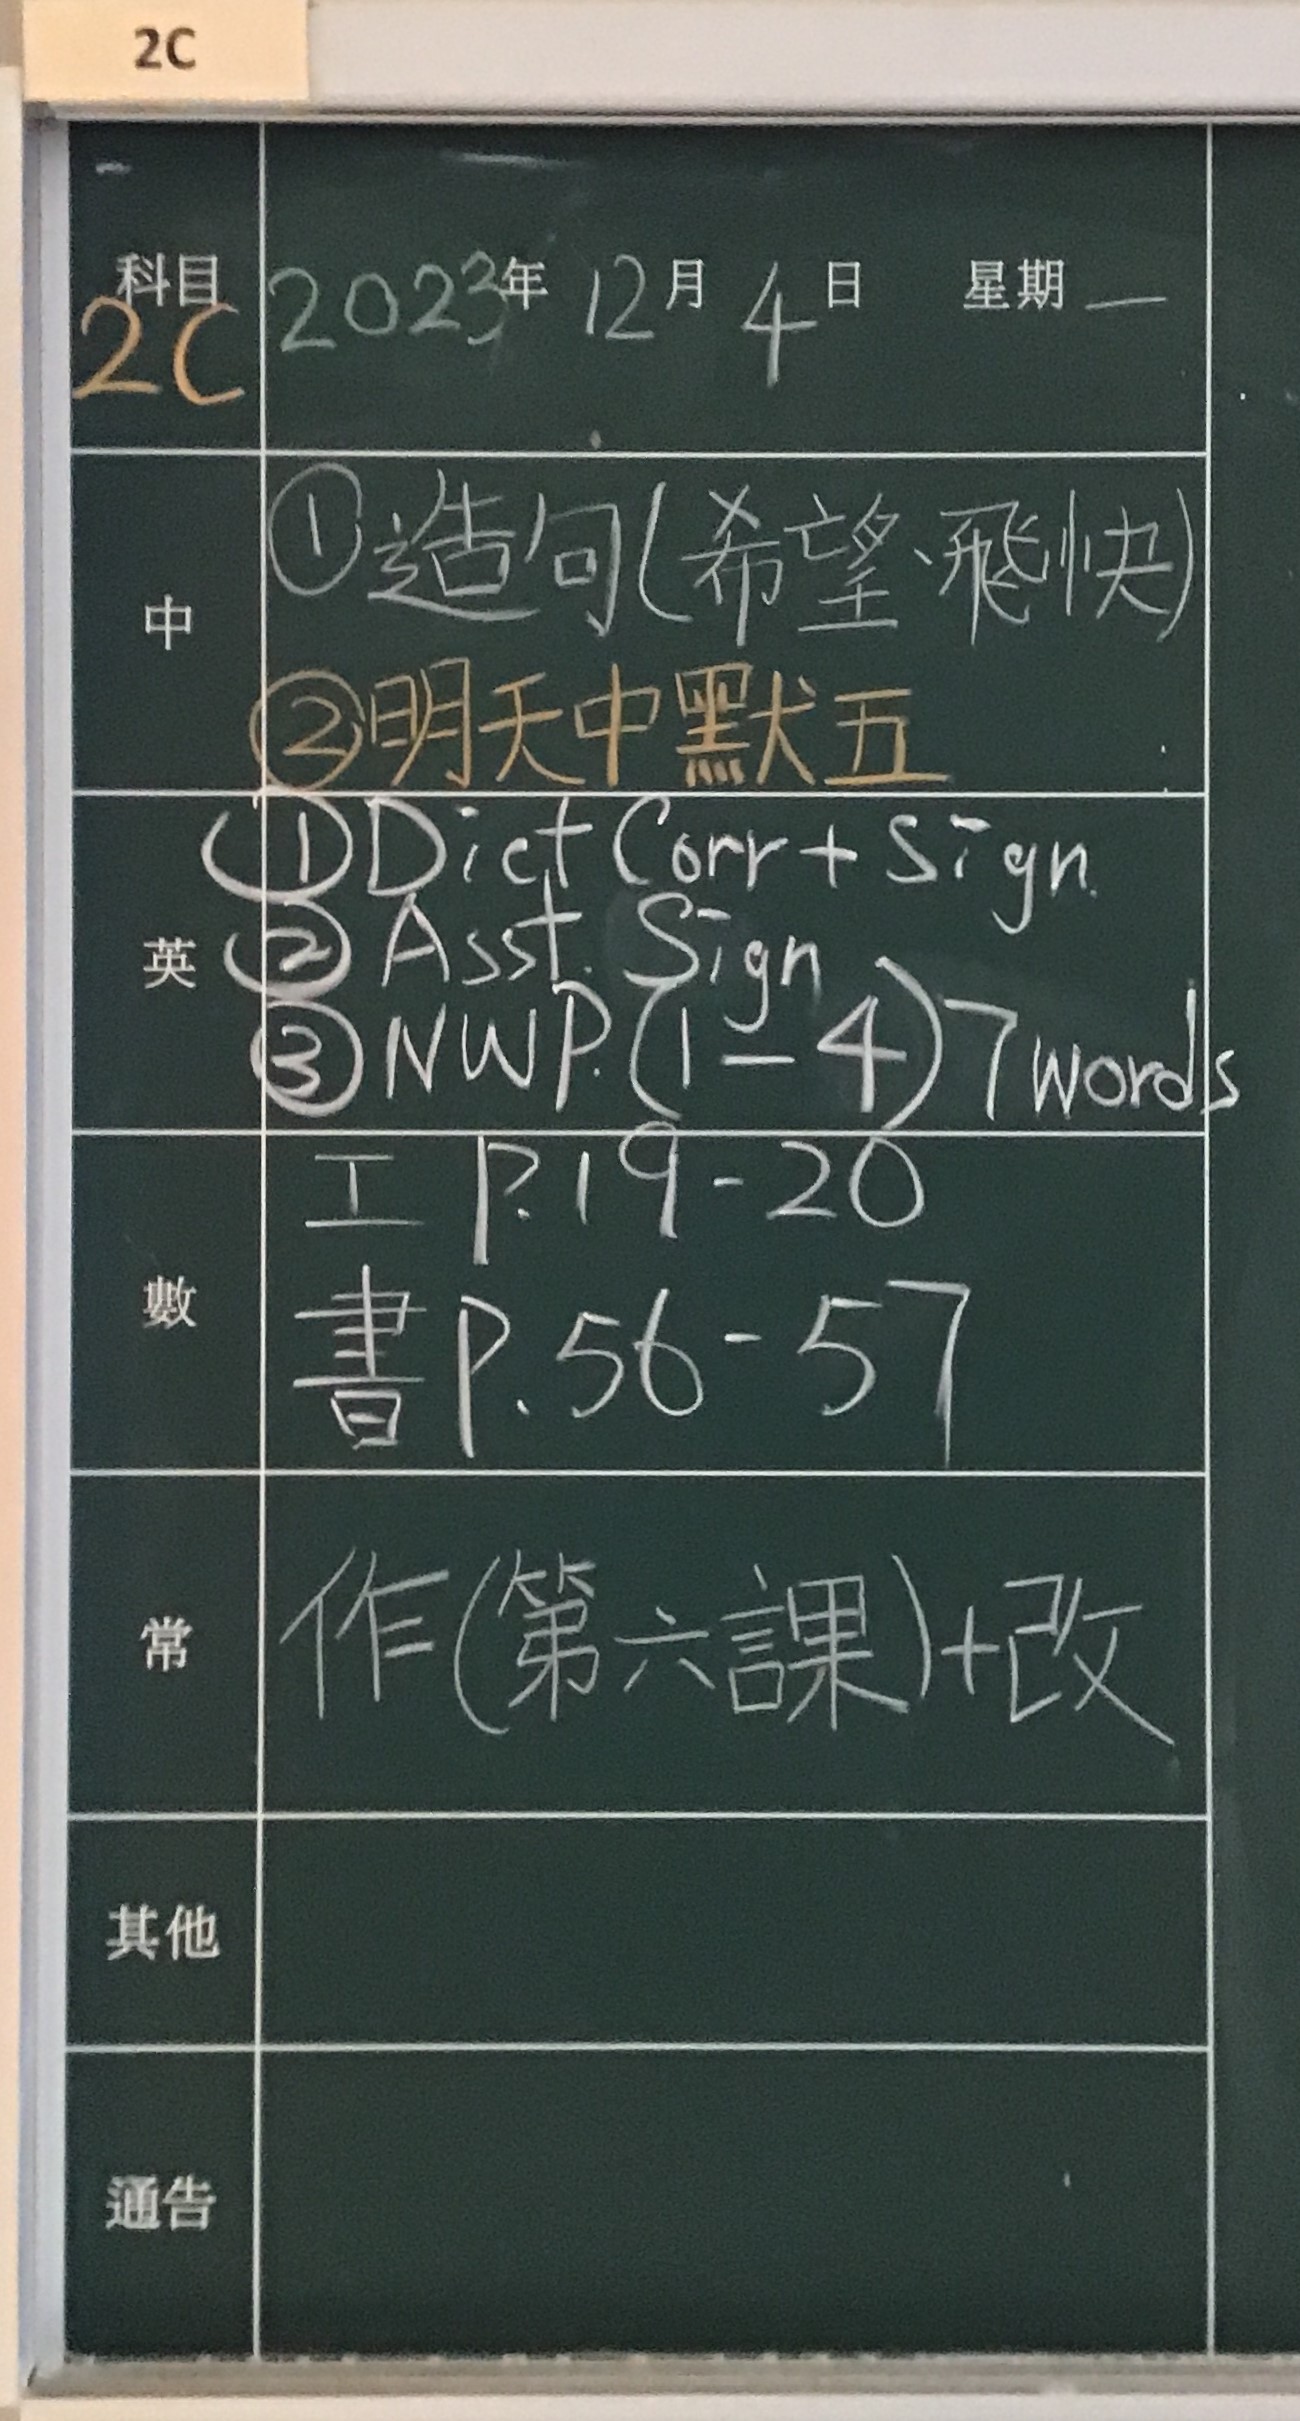 2C
科目 2023年 12月 4日 星期一
2C
中
①造句(希望、飛快)
②明天中默五
英
①Dict Corr + Sign
②Asst. Sign
③NWP.(1-4) 7 words
數
工 P.19-20
書 P.56-57
常
作(第六課)+改
其他
通告